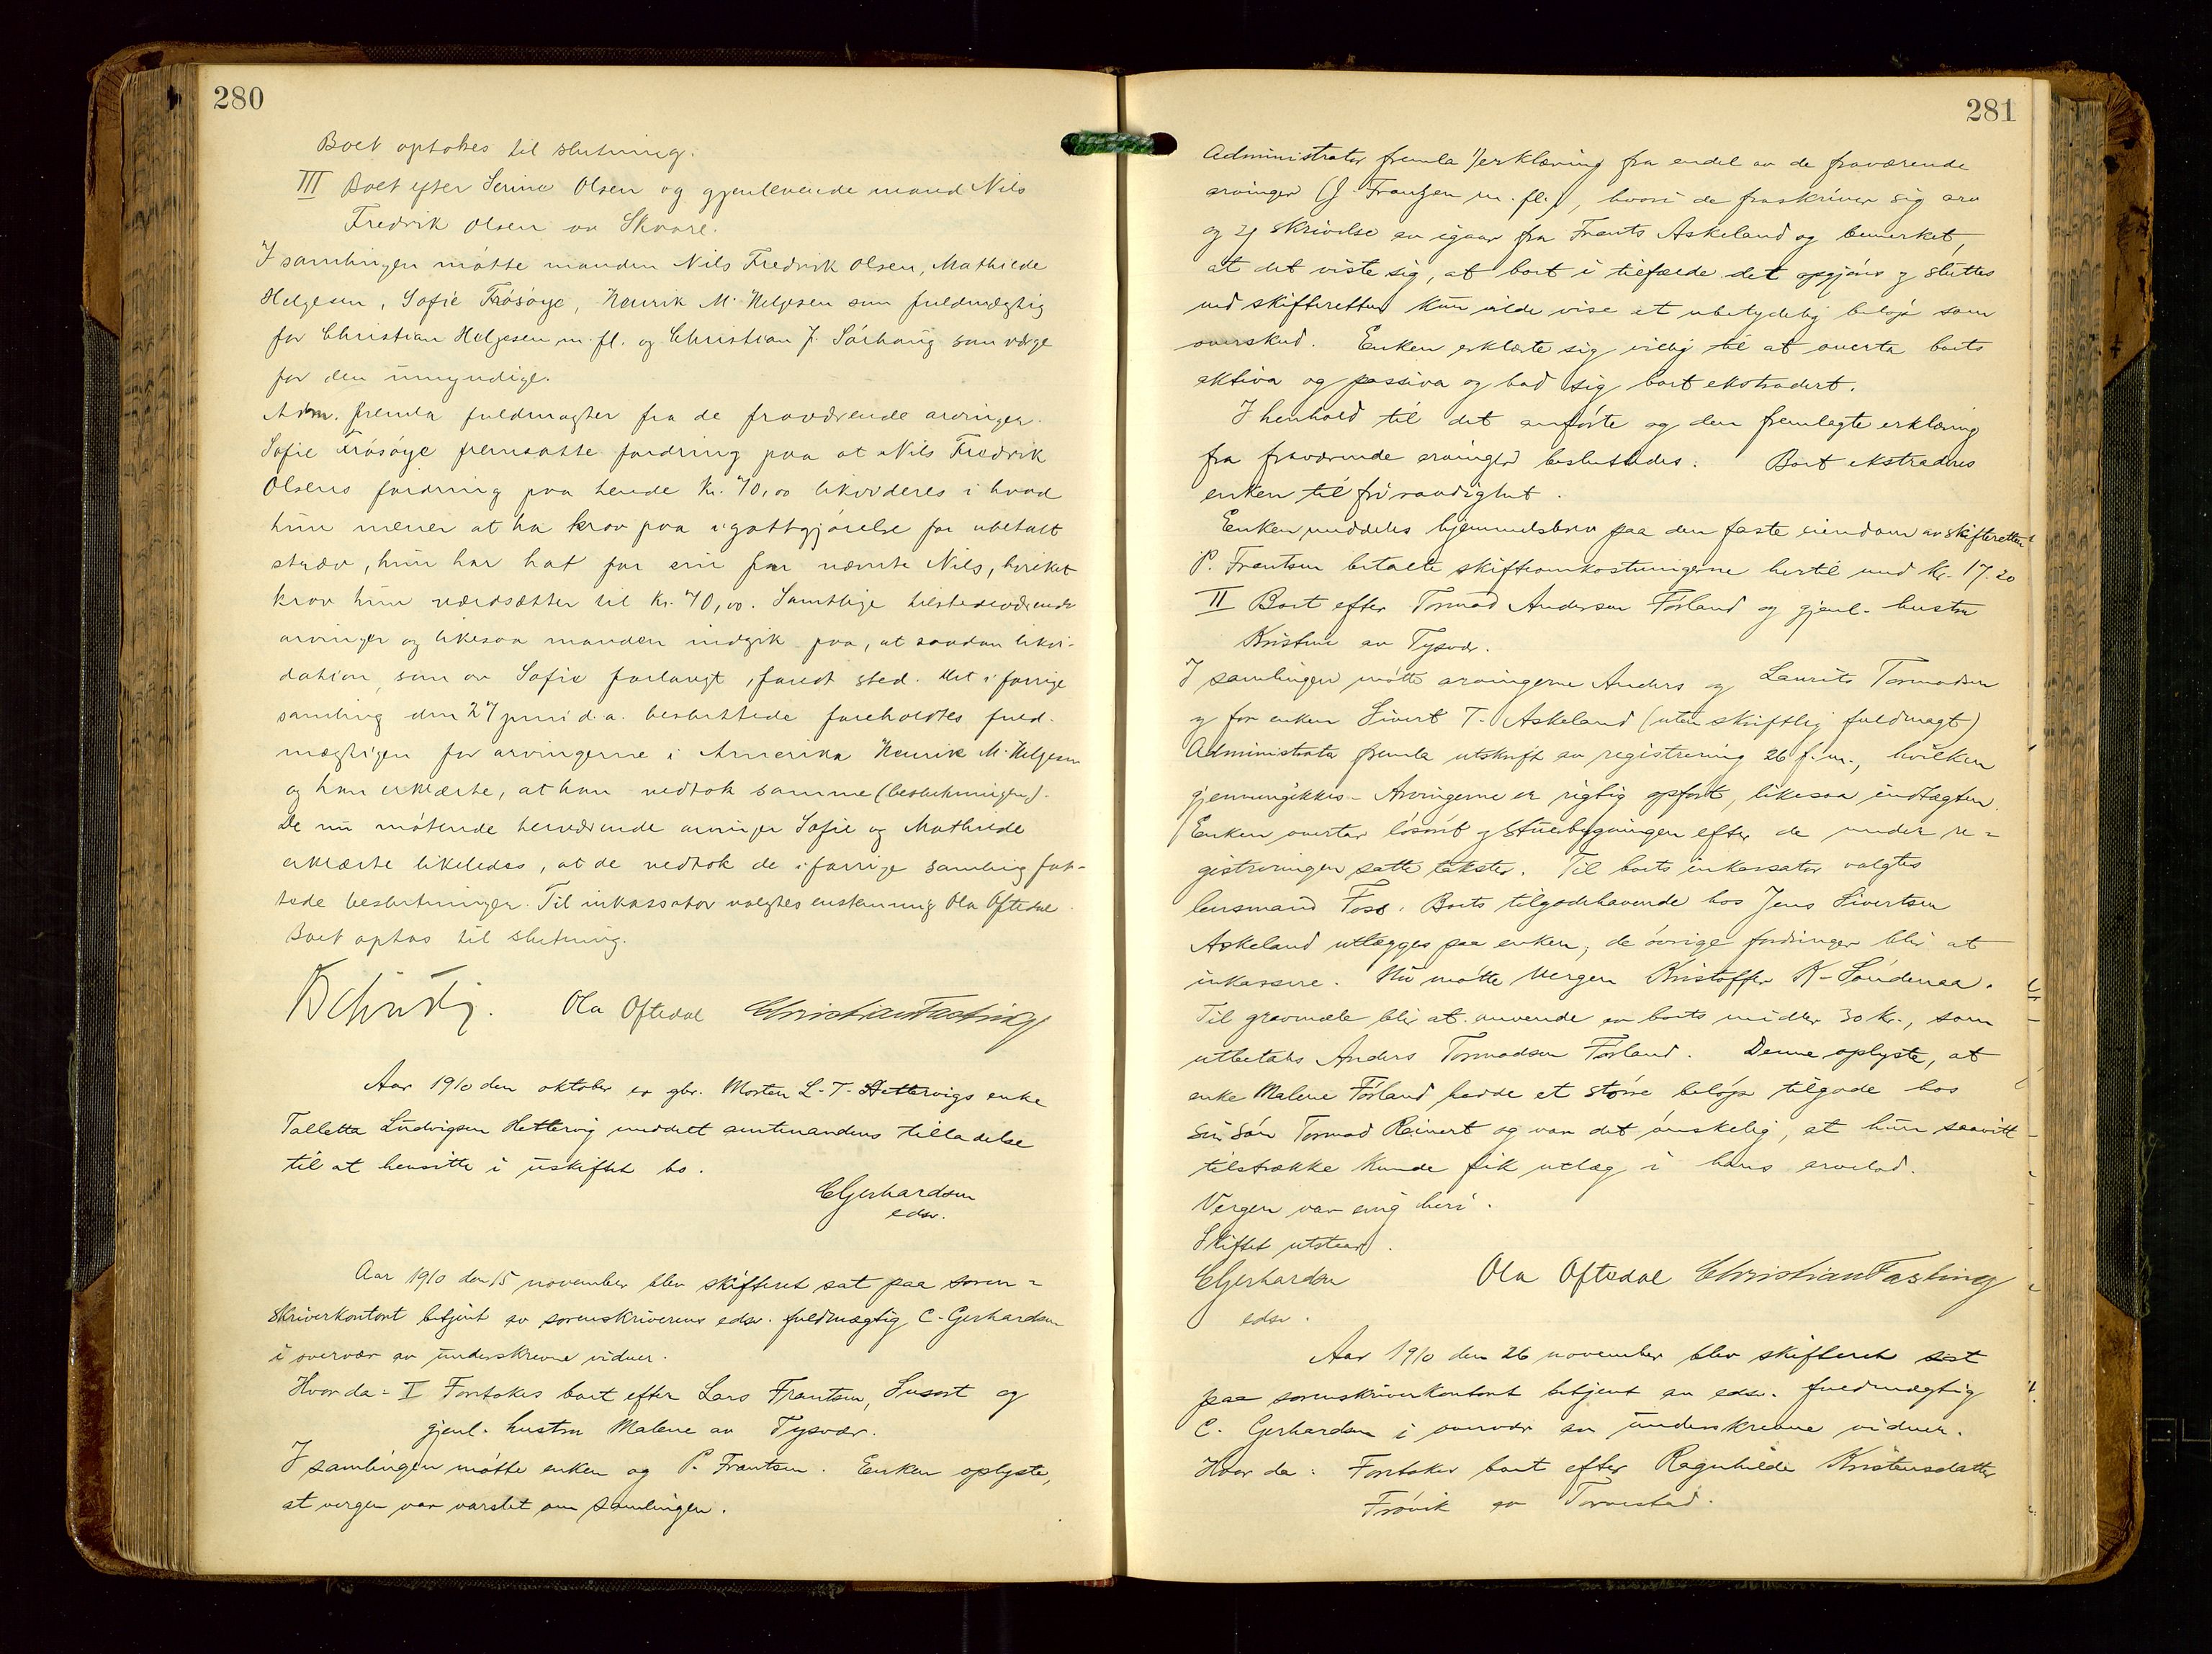 280
Boet optokes til slutning.
III Boet efter Serine Olsen og gjenlevende mand Nils
Fredrik Olsen av Skaare.
I samlingen møtte manden Nils Fredrik Olsen, Mathilde
Helgesen, Sofie Frøsøye, Henrik M. Helgesen som fuldmægtig
for Christian Helgesen m. fl. og Christian J. Sørhaug som verge
for den umyndige.
Adm. fremla fuldmagter fra de fraværende arvinger.
Sofie Frøsøye fremsatte fordring paa at Nils Fredrik
Olsens fordring paa hende Kr. 70,00 likvideres i hvad
hun mener at ha krav paa i godtgjørelse for ubetalt
stræv, hun har hat for sin far nævnte Nils, hvilket
krav hun værdsætter til Kr. 70,00. Samtlige tilstedeværende
arvinger og likesaa manden indgik paa, at saadan likvi-
dation, som av Sofie forlangt, faar sted. Det i forrige
samling den 27 juni d.a. besluttede foreholdtes fuld-
mægtigen for arvingerne i Amerika Henrik M. Helgesen
og han erklærte, at han vedtok samme (beslutningen).
De nu møtende herværende arvinger Sofie og Mathilde
erklærte likeledes, at de vedtok de i forrige samling fat-
tede beslutninger. Til inkassator valgtes enstemmig Ola Oftedal
Boet optas til slutning.
Ola Oftedal Christian Fasting
Aar 1910 den oktober er gbr. Morten L. T. Hettervigs enke
Talletta Ludvigsen Hettervig meddelt amtmandens tilladelse
til at hensitte i uskiftet bo.
CGerhardsen
edsv.
Aar 1910 den 15 november blev skifteret sat paa soren-
skriverkontoret betjent av sorenskriverens edsv. fuldmægtig C. Gerhardsen
i overvær av underskrevne vidner.
Hvor da: I Foretokes boet efter Lars Frantsen, Susort og
gjenl. hustru Malene av Tysvær.
I samlingen møtte enken og P. Frantsen. Enken oplyste,
at vergen var varslet om samlingen.
281
Administrator fremla 1/erklæring fra endel av de fraværende
arvinger (J. Frantzen m. fl.), hvori de fraskriver sig arv
og 2/ skrivelse av igaar fra Frants Askeland og bemerket,
at det viste sig, at boet i tilfælde det opgjøres og sluttes
ved skifteretten kun vilde vise et ubetydelig beløp som
overskud. Enken erklærte sig villig til at overta boets
aktiva og passiva og bad sig boet ekstradert.
I henhold til det anførte og den fremlagte erklæring
fra fraværende arvinger besluttedes: Boet ekstraderes
enken til fri raadighet.
Enken meddeles hjemmelsbrev paa den faste eiendom av skifteretten
P. Frantsen betalte skifteomkostningerne hertil med Kr. 17.20
II Boet efter Tormod Andersen Førland og gjenl. hustru
Kristine av Tysvær.
I samlingen møtte arvingerne Anders og Laurits Tormodsen
og for enken Sivert T. Askeland (uten skriftlig fuldmagt)
Administrator fremla utskrift av registrering 26 f. m., hvilken
gjennemgikkes. Arvingerne er rigtig opført, likesaa indtægten.
Enken overtar løsøret og stuebygningen efter de under re-
gistreringen satte takster. Til boets inkassator valgtes
lensmand Foss. Boets tilgodehavende hos Jens Sivertsen
Askeland utlægges paa enken, de øvrige fordringer blir at
inkassere. Nu møtte vergen Kristoffer K. Søndenaa.
Til gravmæle blir at anvende av boets midler 30 kr., som
utbetales Anders Tormodsen Førland. Denne oplyste, at
enke Malene Førland hadde et større beløp tilgode hos
sin søn Tormod Reinert og var det ønskelig, at hun saavitt
tilstrække kunde fik utlæg i hans arvelod.
Vergen var enig heri.
Skiftet utstaar.
CGerhardsen Ola Oftedal Christian Fasting
edsv.
Aar 1910 den 26 november blev skifteret sat
paa sorenskriverkontoret betjent av edsv. fuldmægtig
C. Gerhardsen i overvær av underskrevne vidner.
Hvor da: Foretokes boet efter Ragnhilde Kristensdatter
Frøvik av Torvestad.